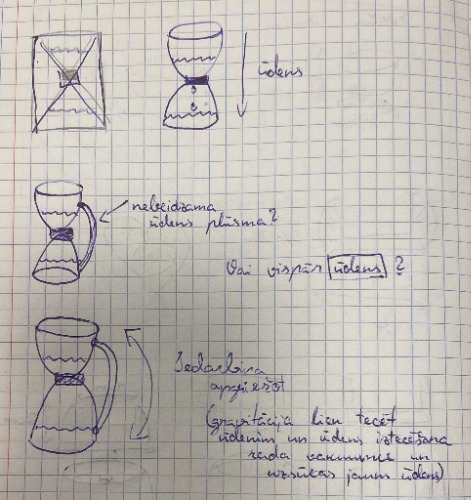 ūdens
nebeidzama
ūdens plūsma?
Vai vispār ūdens ?
Iedarbina
apgriežot
(gravitācija liek tecēt
ūdenim un ūdens iztecēšana
rada vakuumu un
uzsūcas jauns ūdens)